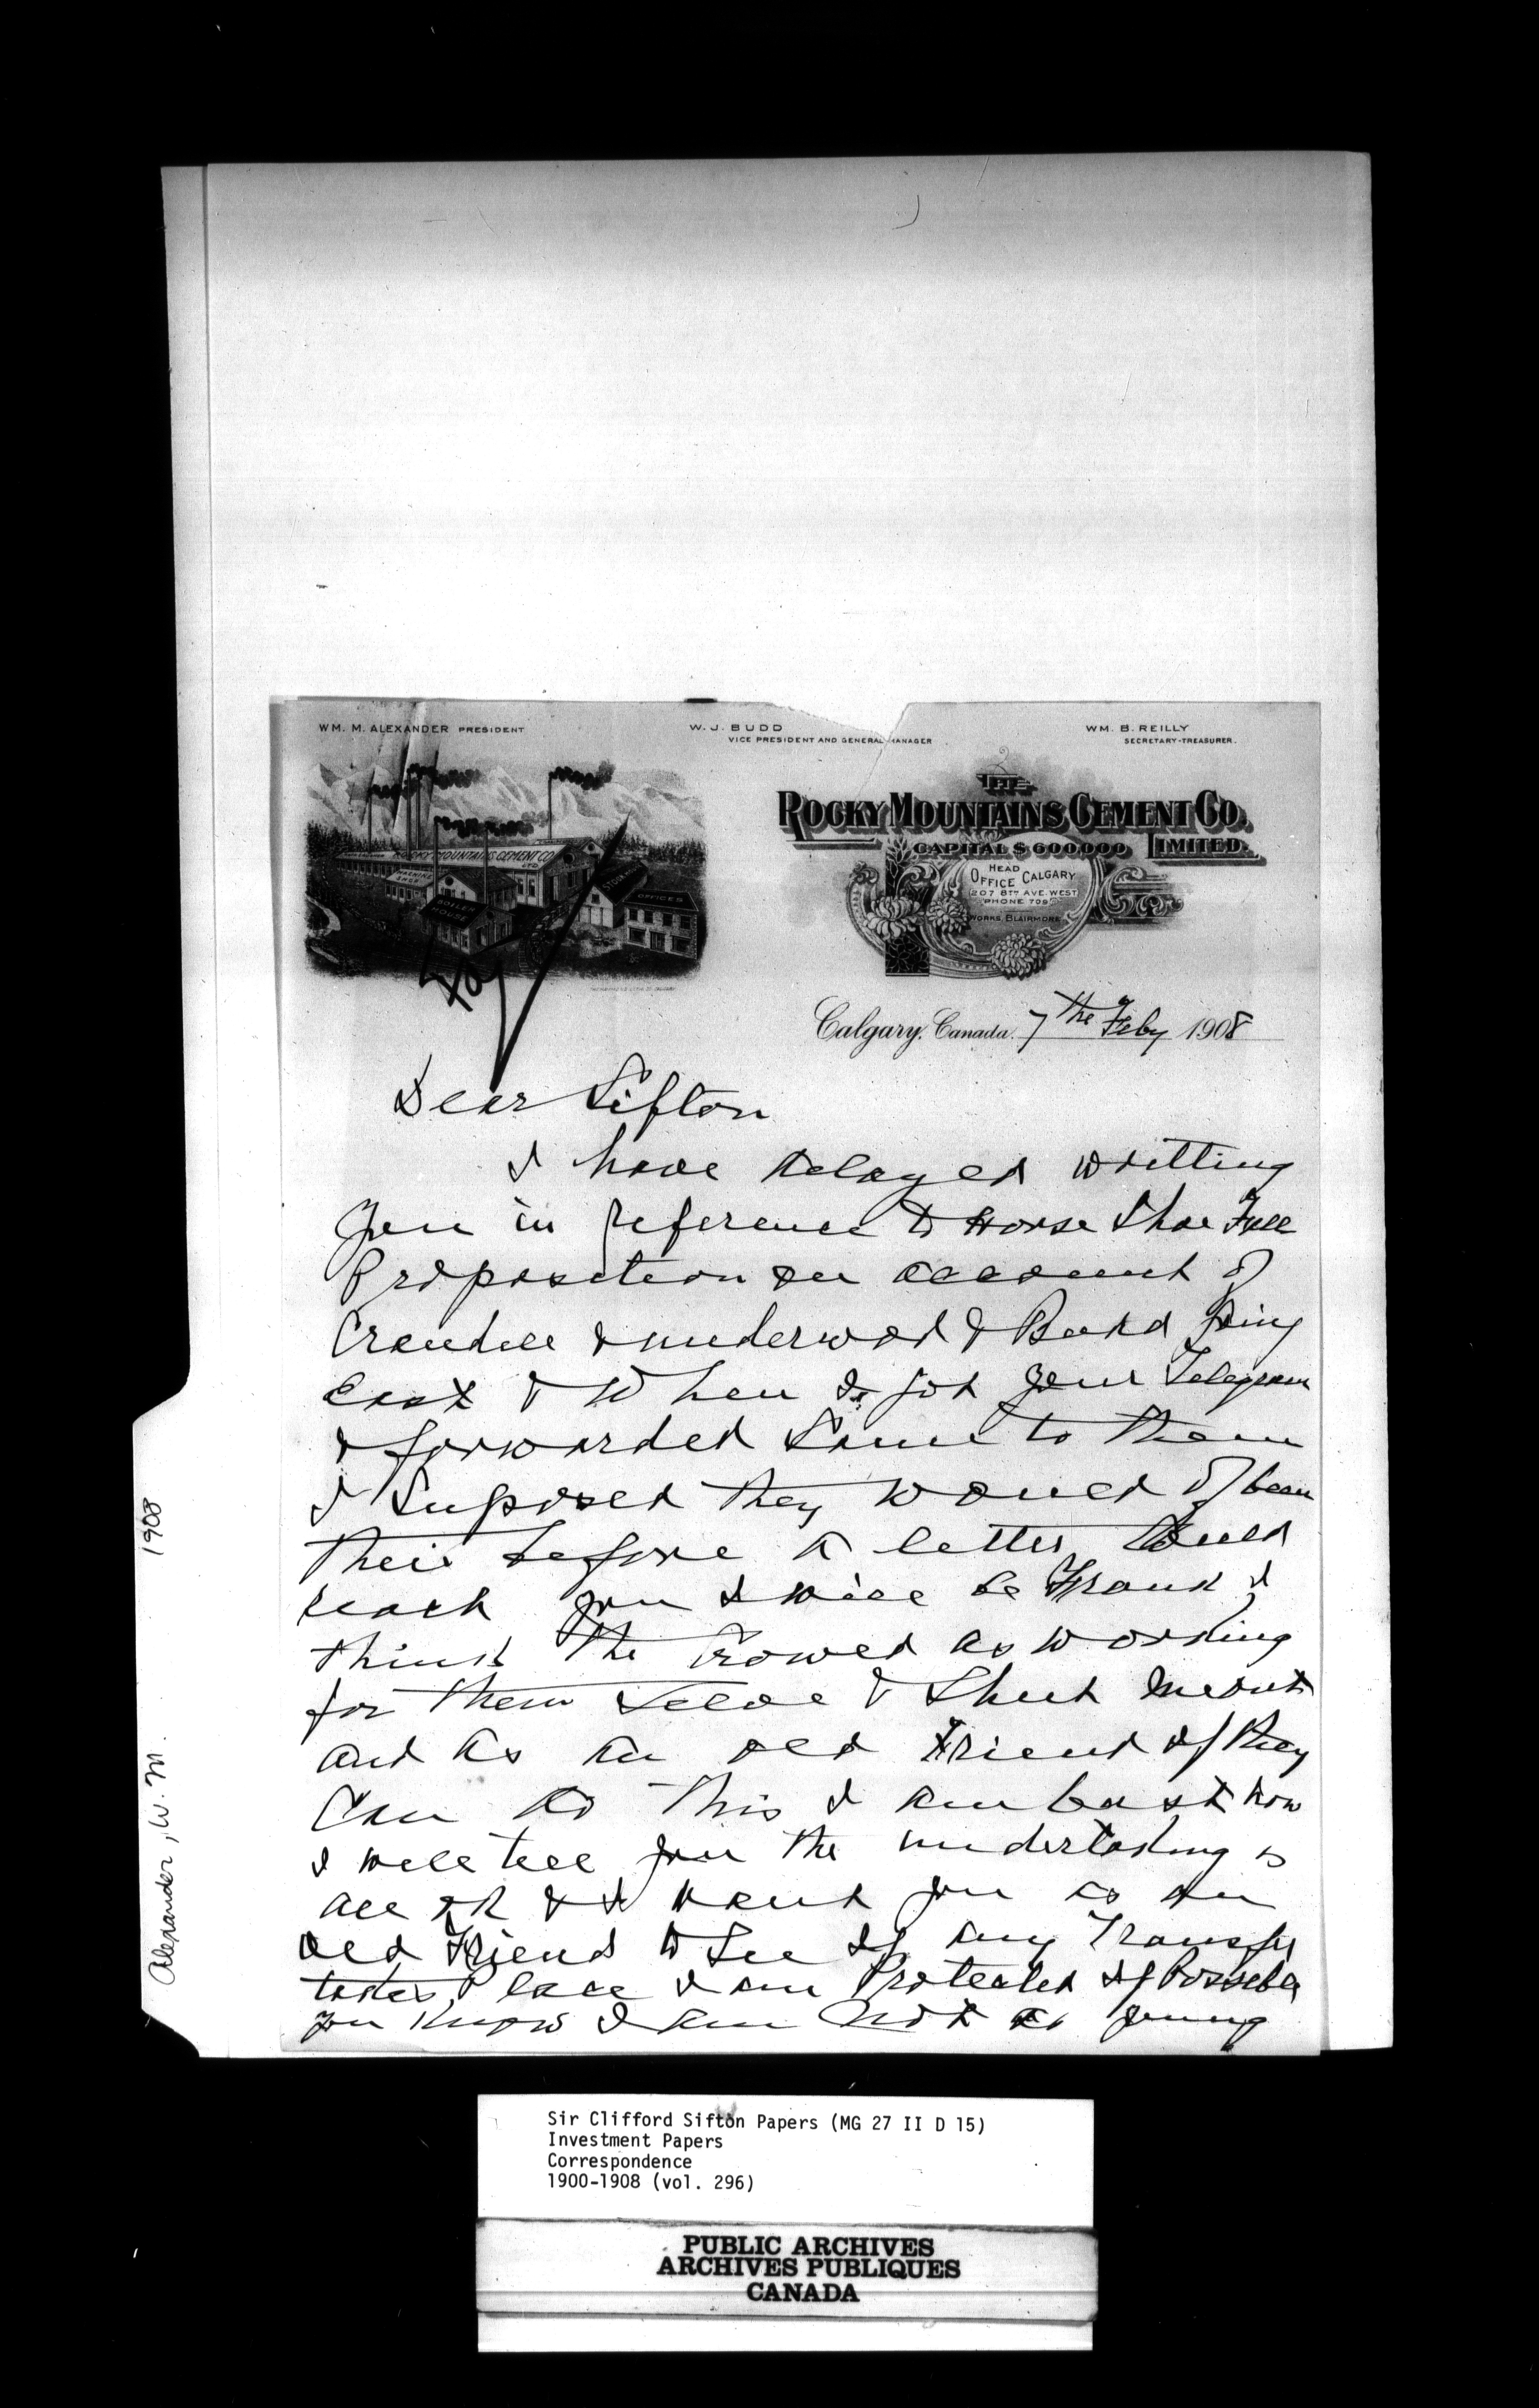 WM. M. ALEXANDER PRESIDENT
W. J. BUDD
VICE PRESIDENT AND GENERAL MANAGER
WM. B. REILLY
SECRETARY-TREASURER.
ROCKY MOUNTAINS CEMENT CO.
LTD.
MACHINE SHOP
BOILER HOUSE
STOCK HOUSE
OFFICES
THE
ROCKY MOUNTAINS CEMENT CO.
CAPITAL $600,000 LIMITED.
HEAD
OFFICE CALGARY
207 8TH AVE. WEST
PHONE 709
WORKS, BLAIRMORE
Calgary, Canada. 7 the Feby 1908
Dear Sifton
I have delayed writting
you in reference to Horse Shoe Fall
Proposition on account of
Crandell & underwod & Budd going
East & When I got your Telegram
& forwarded Same to them
I Suposed they would of been
their before a letter could
reach you I will be Frank I
think the Crowed as working
for them Selve & Shut me out
and as an old Friend if they
Can do this I am bast now
I will tell you the undertaking is
all ok & I want you as an
old Friend to See if any Transfer
takes Place I am Protected if Possible
you Know I am Not as young
Alexander, W. M. 1908
Sir Clifford Sifton Papers (MG 27 II D 15)
Investment Papers
Correspondence
1900-1908 (vol. 296)
PUBLIC ARCHIVES
ARCHIVES PUBLIQUES
CANADA